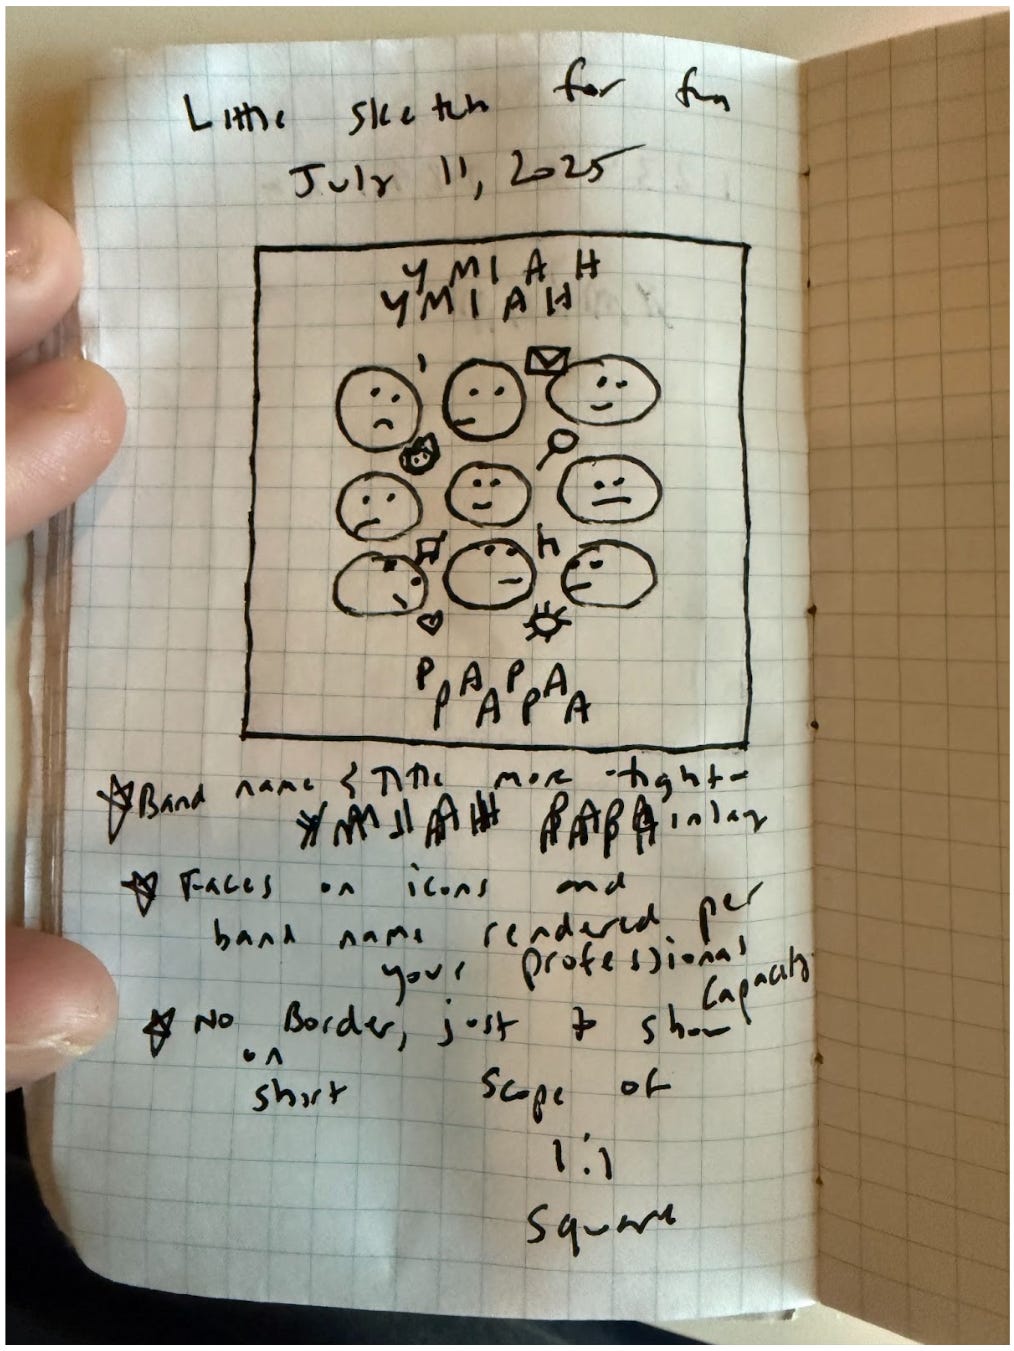 Little sketch for fun
July 11, 2025
YMIAH
YMIAH
PAPA
PAPA
Band name & Title more tight-
YMIAH PAPA inlay
Faces on icons and
band name rendered per
your professional
capacity
No Border, just to show
on
shirt scope of
1:1
Square